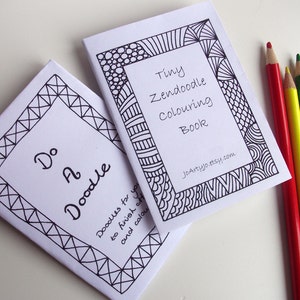 Tiny
Zendoodle
Colouring
Book
JoArtyJo.etsy.com
Do
A
Doodle
Doodles for you
to finish off
and colour